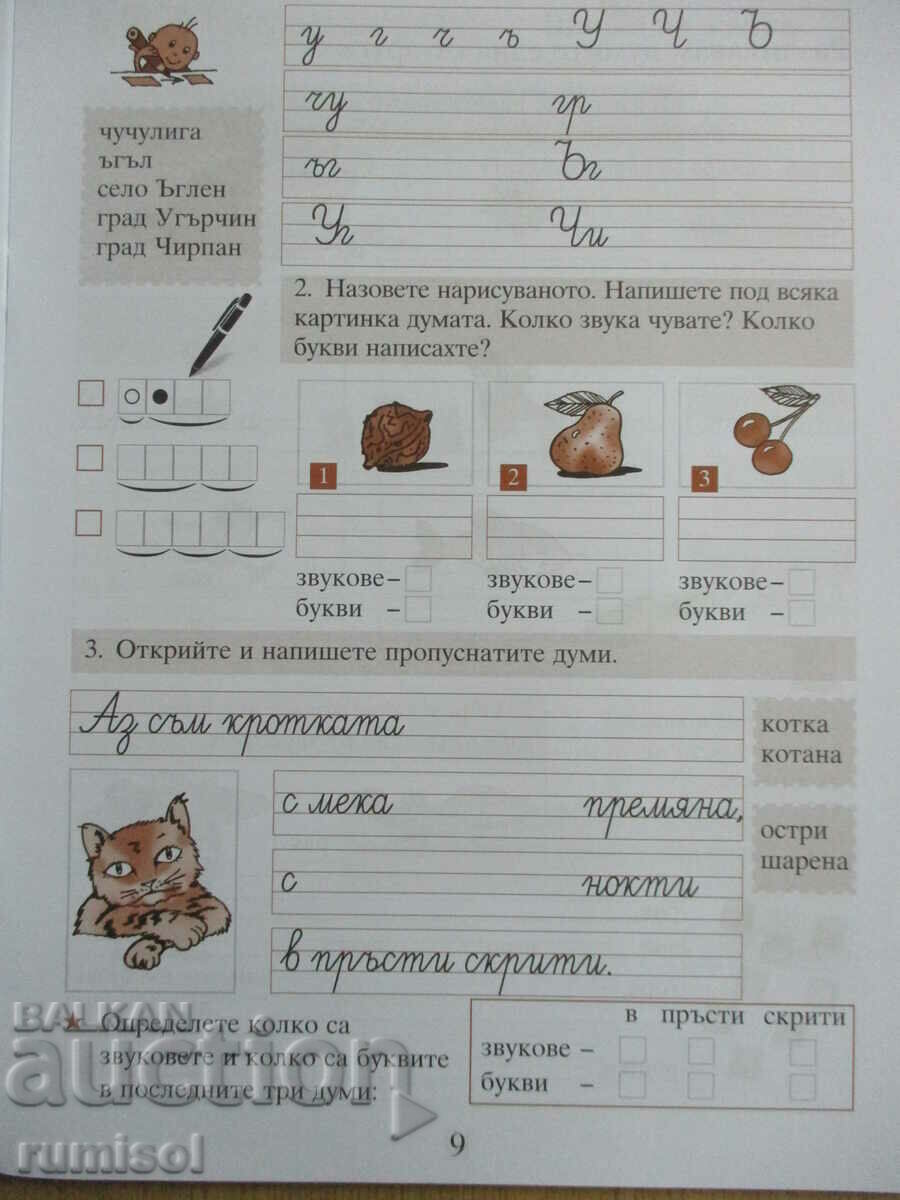 у г ч ъ У Ч Ъ
чу гр
ъг Ъг
Уг Чи
чучулига
ъгъл
село Ъглен
град Угърчин
град Чирпан
2. Назовете нарисуваното. Напишете под всяка
картинка думата. Колко звука чувате? Колко
букви написахте?
1 2 3
звукове – звукове – звукове –
букви – букви – букви –
3. Открийте и напишете пропуснатите думи.
Аз съм кротката
котка
котана
с мека премяна,
остри
шарена
с нокти
в пръсти скрити.
★ Определете колко са
звуковете и колко са буквите
в последните три думи:
в пръсти скрити
звукове –
букви –
9
BALKAN
auction
rumisol